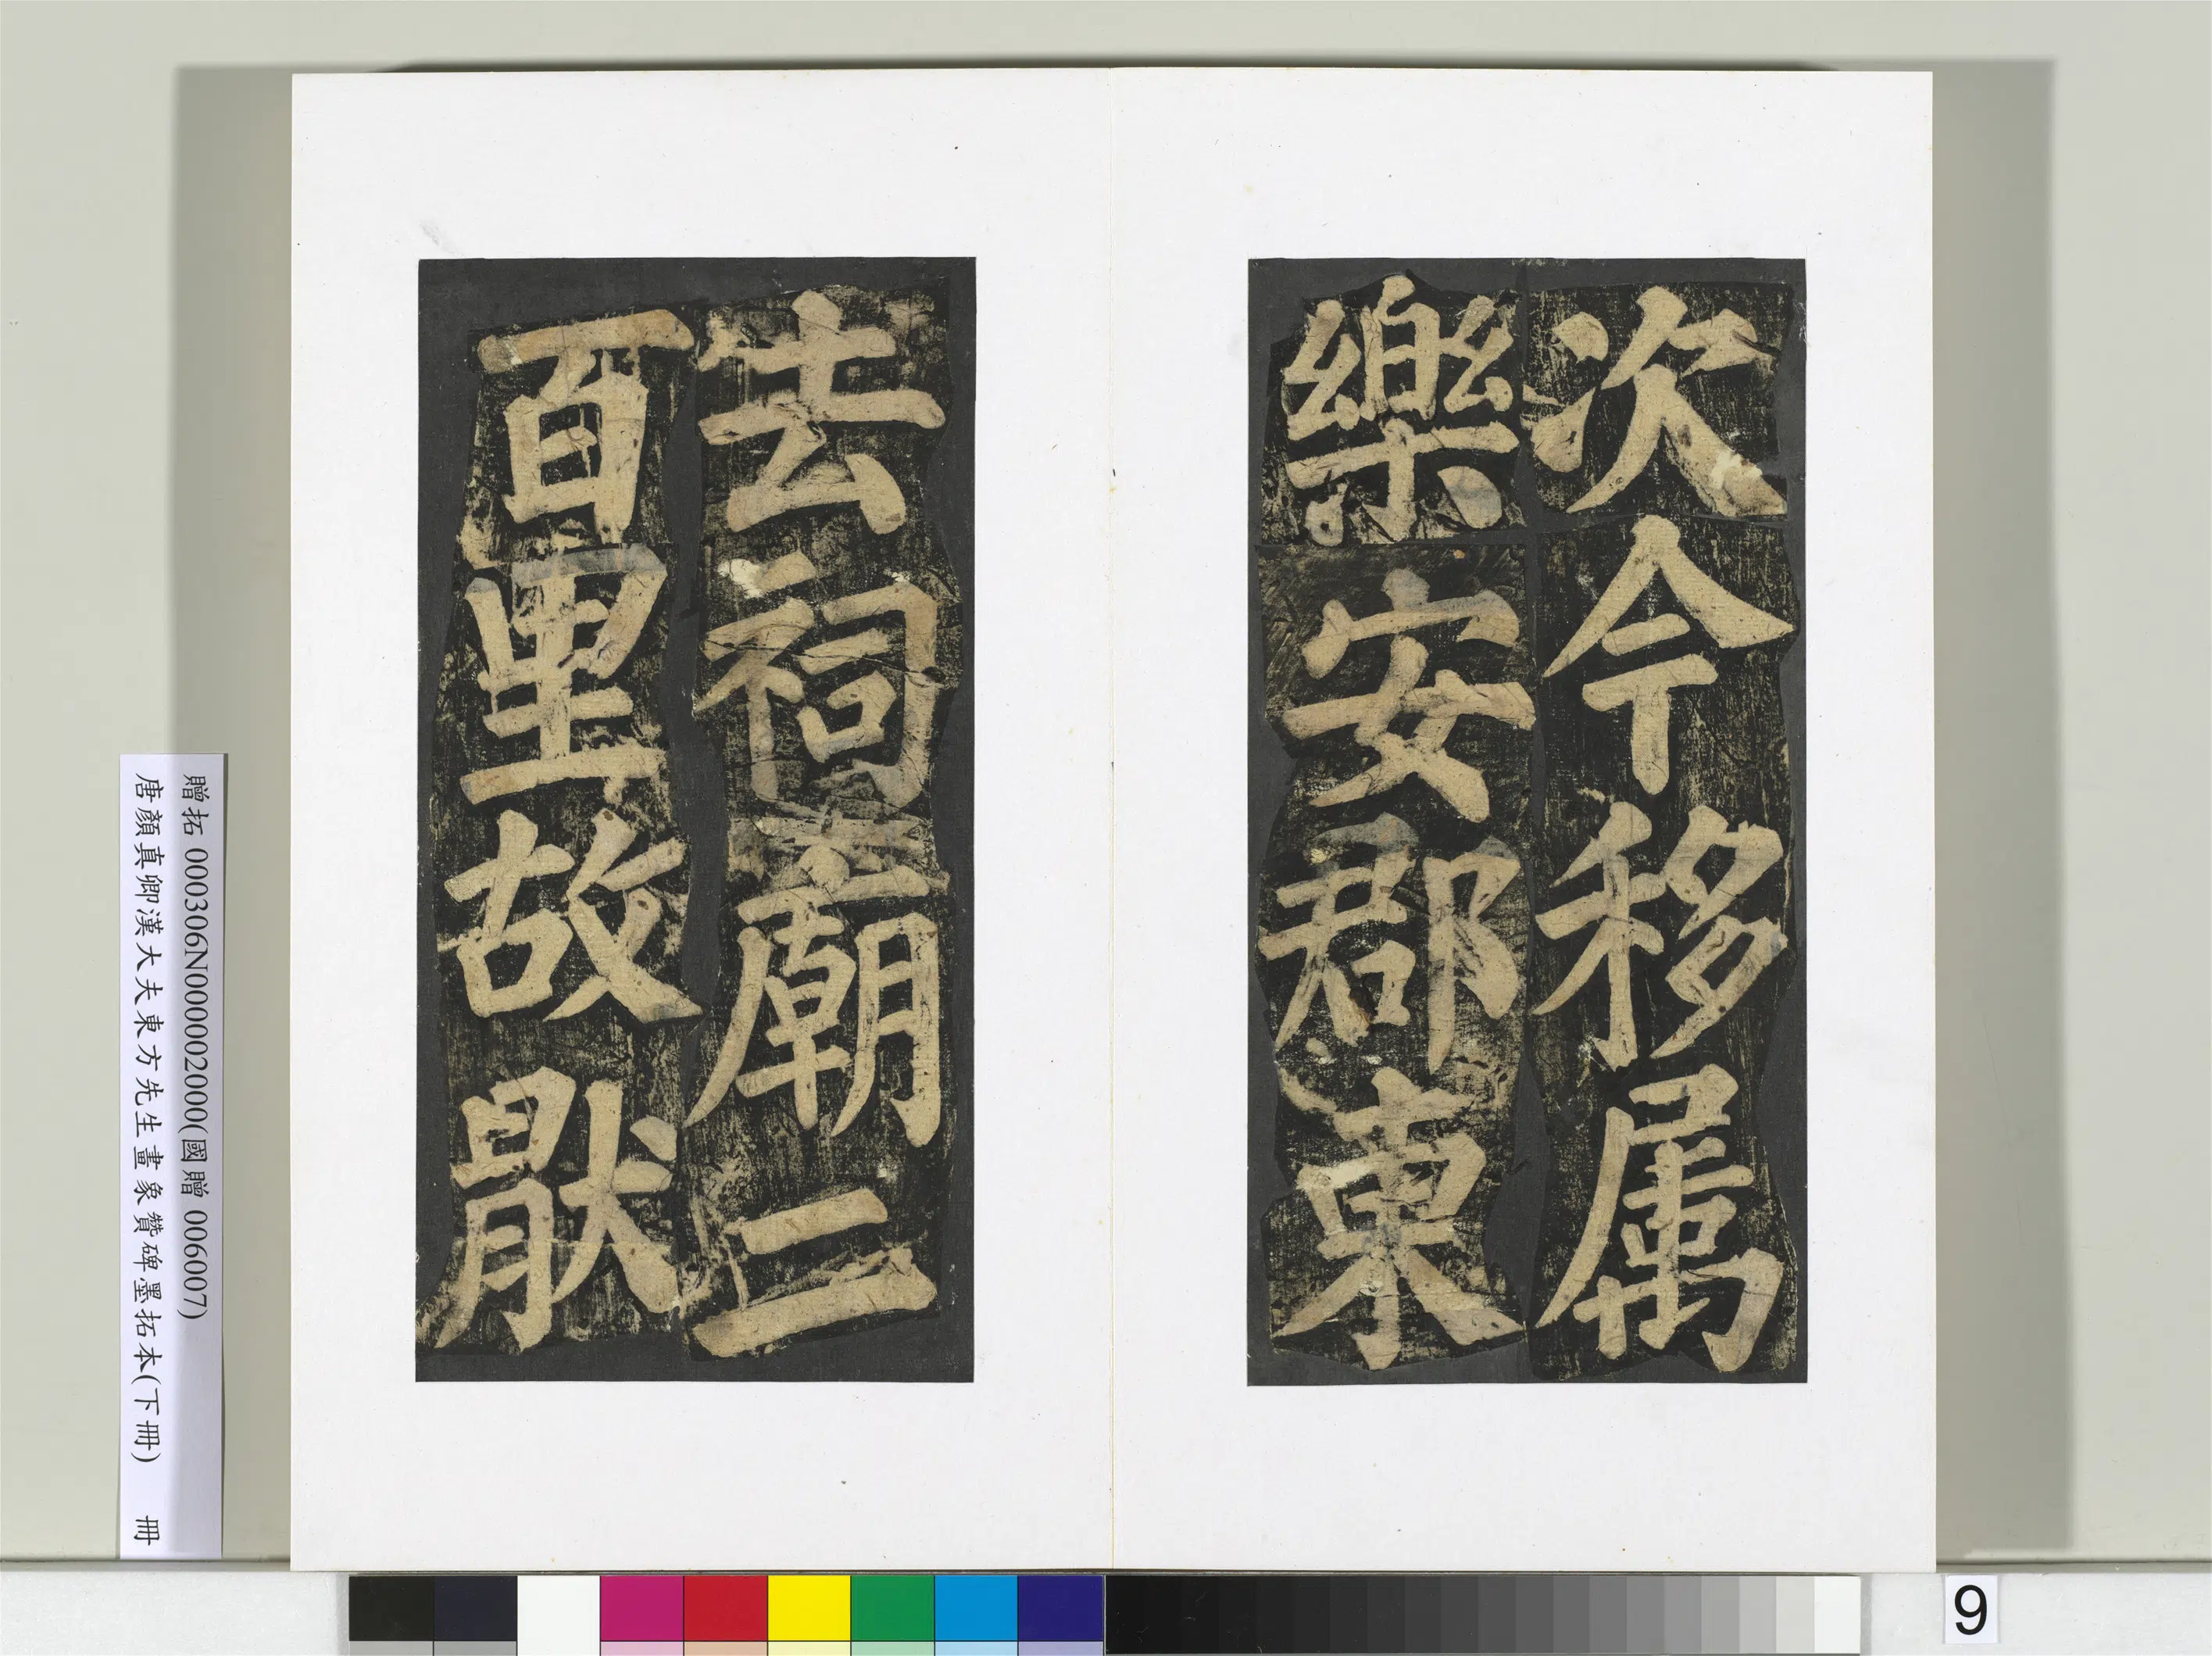 次今移属
樂安郡東
去祠廟二
百里故猒
贈拓 000306N000002000(國贈 006007)
唐顏真卿漢大夫東方先生畫象贊碑墨拓本(下冊) 冊
9